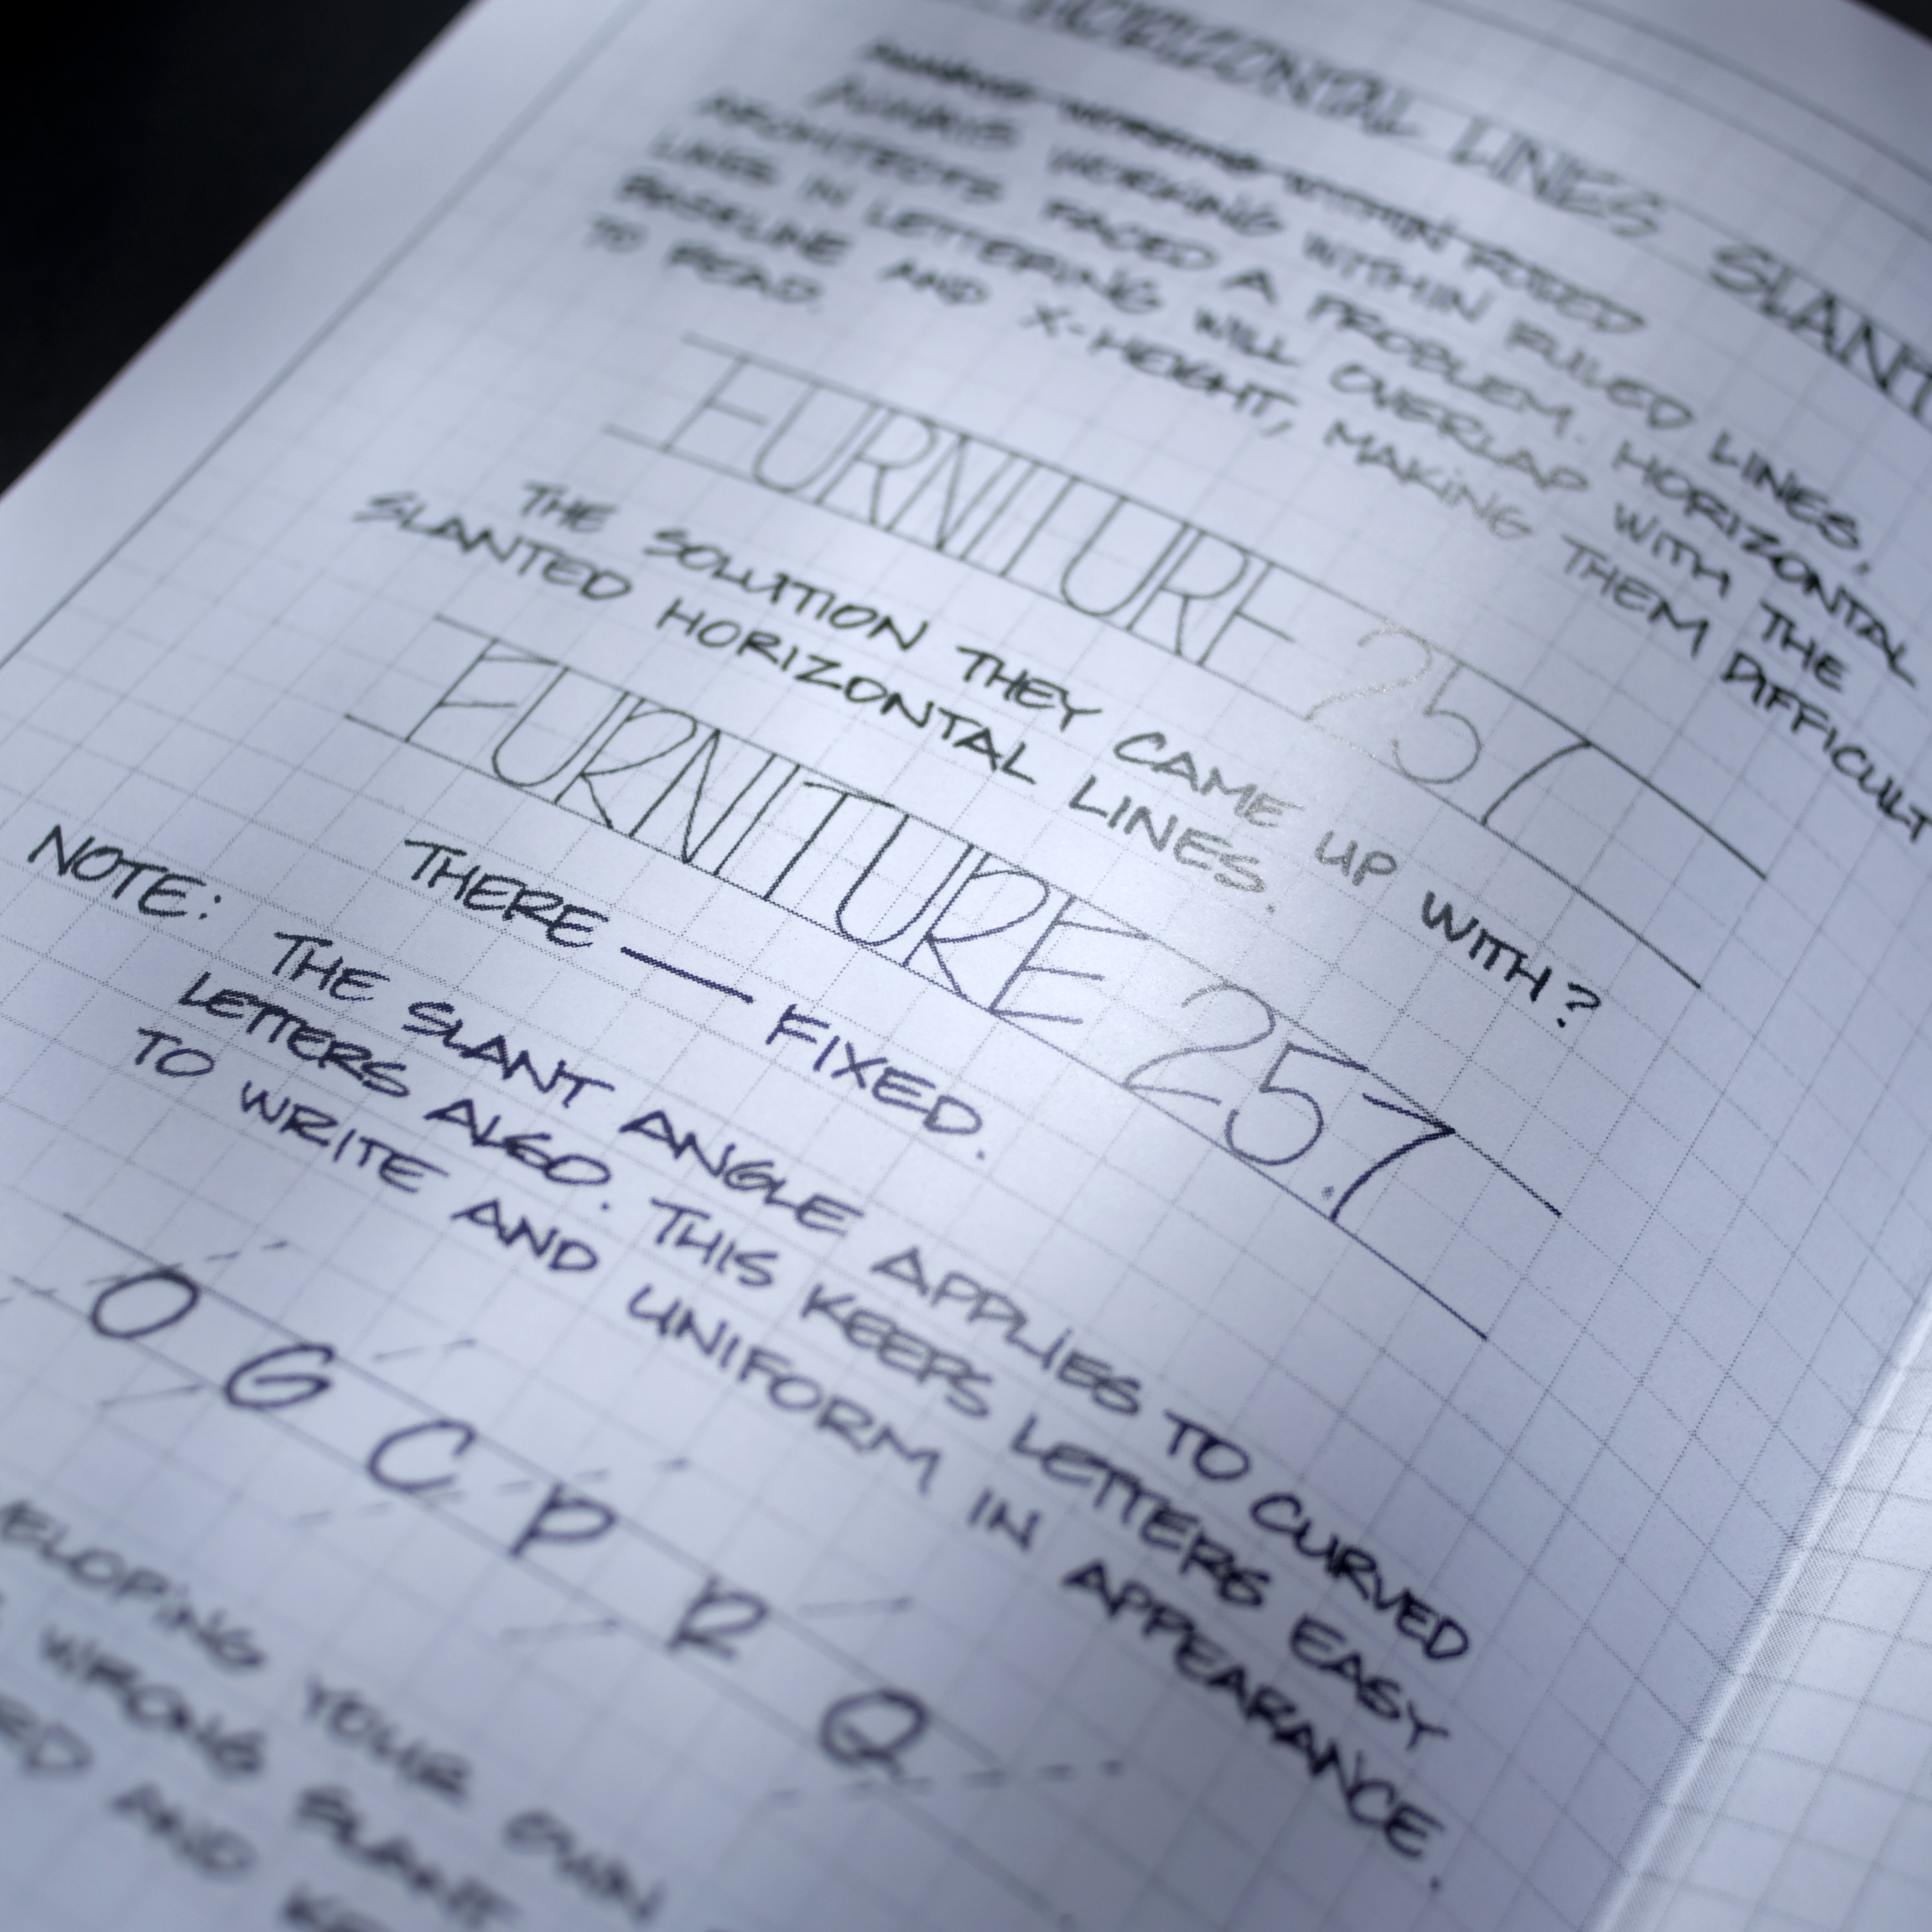 HORIZONTAL LINES SLANT
ALWAYS WORKING WITHIN RULED
ALWAYS WORKING WITHIN RULED LINES,
ARCHITECTS FACED A PROBLEM. HORIZONTAL
LINES IN LETTERING WILL OVERLAP WITH THE
BASELINE AND X-HEIGHT, MAKING THEM DIFFICULT
TO READ.
FURNITURE 257
THE SOLUTION THEY CAME UP WITH?
SLANTED HORIZONTAL LINES.
FURNITURE 257
THERE — FIXED.
NOTE: THE SLANT ANGLE APPLIES TO CURVED
LETTERS ALSO. THIS KEEPS LETTERS EASY
TO WRITE AND UNIFORM IN APPEARANCE.
O G C P R Q
ELOPING YOUR OWN
WRONG SLANT
RD AND